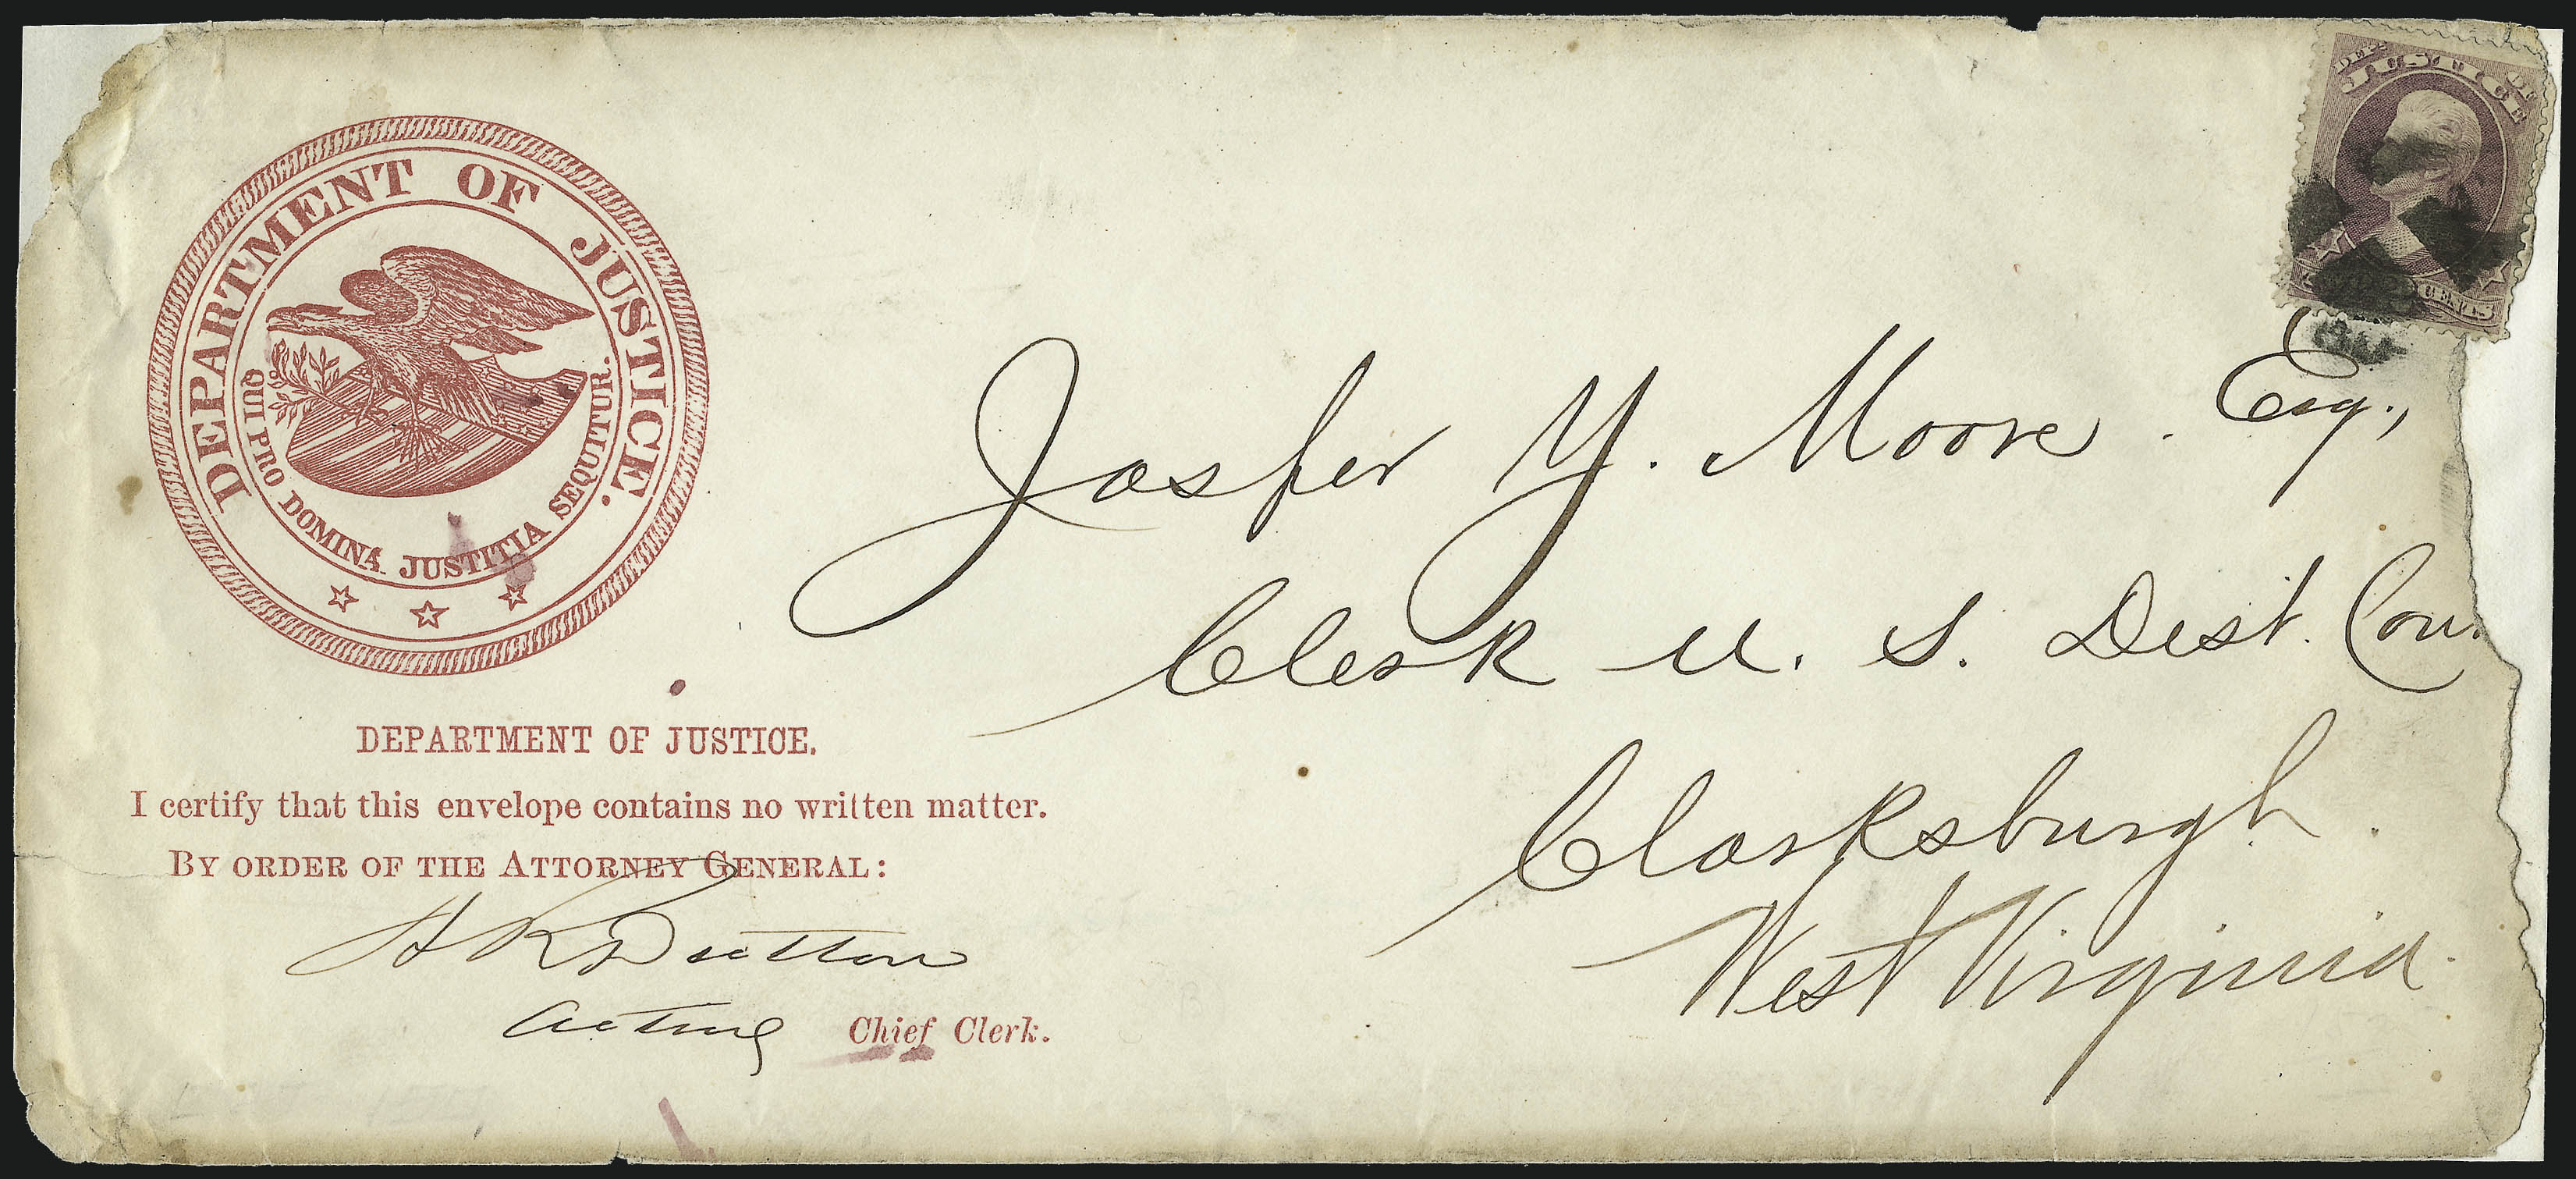 DEPARTMENT OF JUSTICE.
QUI PRO DOMINA JUSTITIA SEQUITUR.
DEPT. OF JUSTICE
CENTS
Jasper Y. Moore. Esq.,
Clerk U. S. Dist. Cou
Clarksburgh.
West Virginia.
DEPARTMENT OF JUSTICE.
I certify that this envelope contains no written matter.
BY ORDER OF THE ATTORNEY GENERAL:
Acting Chief Clerk.